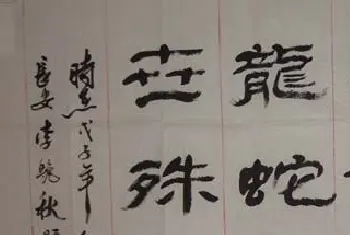 龍蛇
世殊
時在戊子年
長安李秋